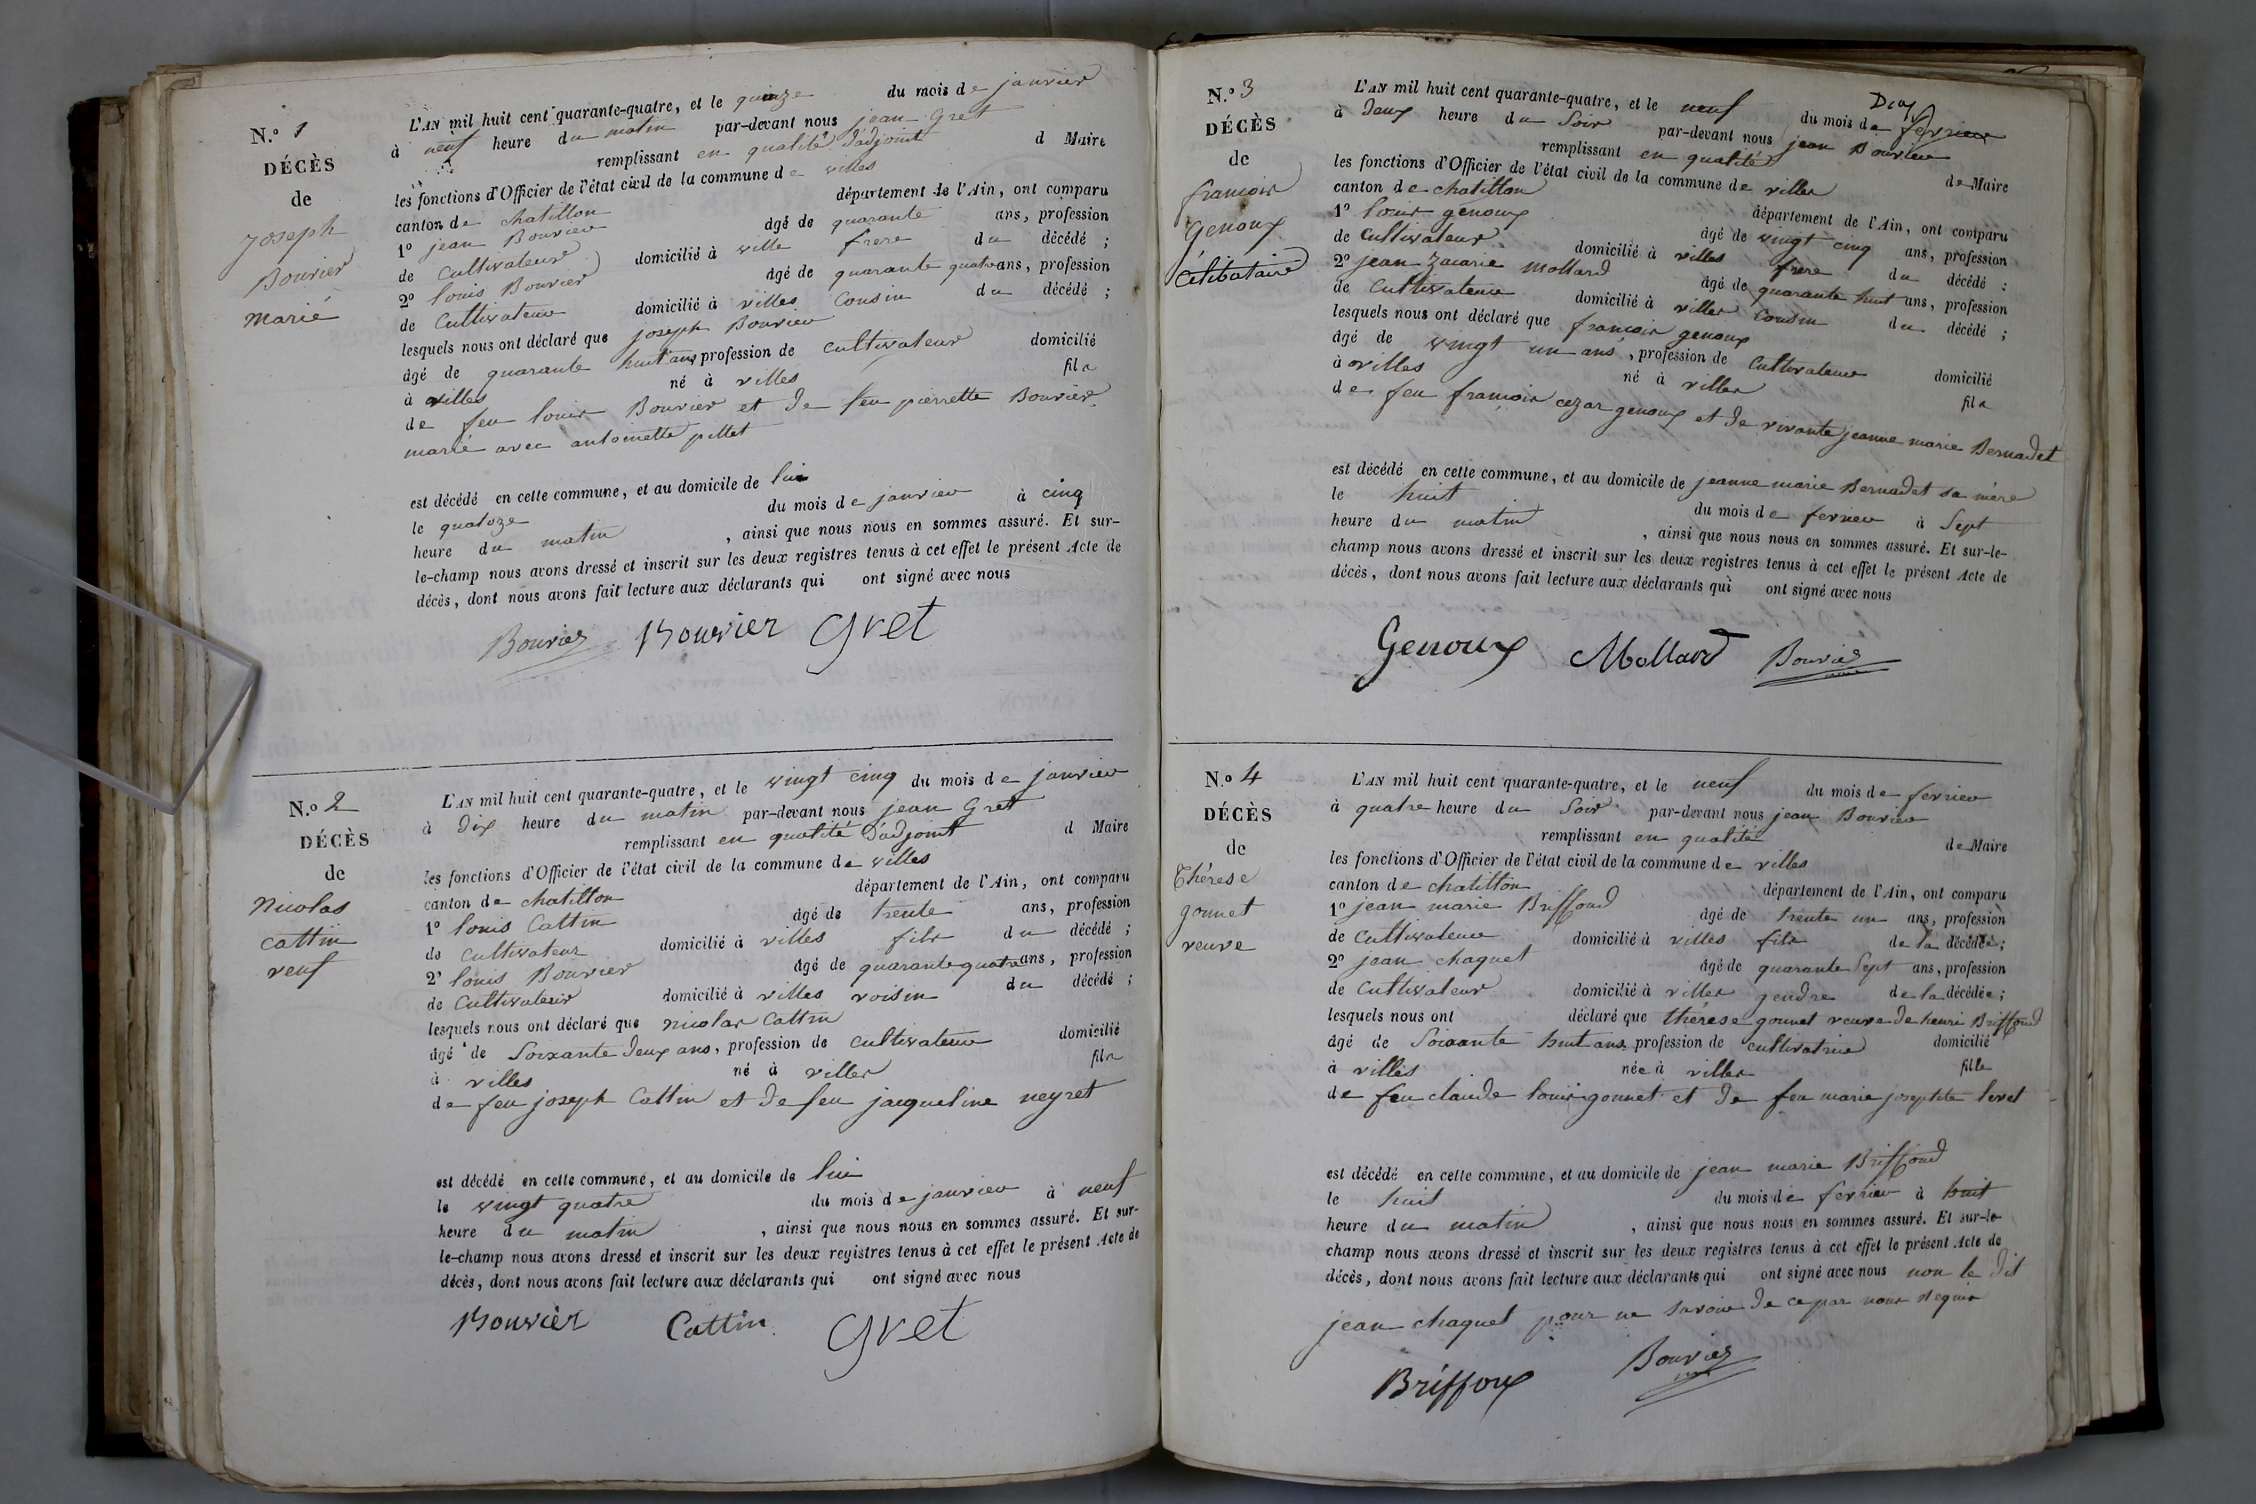 N.º 1
DÉCÈS
de
Joseph
Bouvier
marié
L'AN mil huit cent quarante-quatre, et le quinze du mois de janvier
à neuf heure du matin par-devant nous jean Gret
remplissant en qualité d'adjoint d Maire
les fonctions d'Officier de l'état civil de la commune de villes
canton de chatillon département de l'Ain, ont comparu
1º jean Bouvier âgé de quarante ans, profession
de cultivateur domicilié à ville frere du décédé ;
2º louis Bouvier âgé de quarante quatre ans, profession
de Cultivateur domicilié à villes Cousin du décédé ;
lesquels nous ont déclaré que joseph Bouvier
âgé de quarante huit ans profession de cultivateur domicilié
à villes né à villes fils
de feu louis Bouvier et de feu pierrette Bouvier
marié avec antoinette pillet
est décédé en cette commune, et au domicile de lui
le quatoze du mois de janvier à cinq
heure du matin , ainsi que nous nous en sommes assuré. Et sur-
le-champ nous avons dressé et inscrit sur les deux registres tenus à cet effet le présent Acte de
décès, dont nous avons fait lecture aux déclarants qui ont signé avec nous
Bouvier Bouvier Gret
N.º 2
DÉCÈS
de
Nicolas
cattin
veuf
L'AN mil huit cent quarante-quatre, et le vingt cinq du mois de janvier
à dix heure du matin par-devant nous jean Gret
remplissant en qualité d'adjoint d Maire
les fonctions d'Officier de l'état civil de la commune de villes
canton de chatillon département de l'Ain, ont comparu
1º louis Cattin âgé de trente ans, profession
de cultivateur domicilié à villes fils du décédé ;
2º louis Bouvier âgé de quarante quatre ans, profession
de Cultivateur domicilié à villes voisin du décédé ;
lesquels nous ont déclaré que nicolas Cattin
âgé de Soixante deux ans, profession de cultivateur domicilié
à villes né à villes fils
de feu joseph Cattin et de feu jacqueline neyret
est décédé en cette commune, et au domicile de lui
le vingt quatre du mois de janvier à neuf
heure du matin , ainsi que nous nous en sommes assuré. Et sur-
le-champ nous avons dressé et inscrit sur les deux registres tenus à cet effet le présent Acte de
décès, dont nous avons fait lecture aux déclarants qui ont signé avec nous
Bouvier Cattin Gret
N.º 3
DÉCÈS
de
françois
Genoux
Célibataire
L'AN mil huit cent quarante-quatre, et le neuf du mois de fevrier
à deux heure du Soir par-devant nous jean Bouvier
remplissant en qualité de Maire
les fonctions d'Officier de l'état civil de la commune de villes
canton de chatillon département de l'Ain, ont comparu
1º louis genoux âgé de vingt cinq ans, profession
de Cultivateur domicilié à villes frere du décédé ;
2º jean zacarie mollard âgé de quarante huit ans, profession
de Cultivateur domicilié à villes Cousin du décédé ;
lesquels nous ont déclaré que françois genoux
âgé de vingt un ans, profession de Cultivateur domicilié
à villes né à villes fils
de feu françois cezar genoux et de vivante jeanne marie Bernadet
est décédé en cette commune, et au domicile de jeanne marie Bernadet sa mère
le huit du mois de fevrier à Sept
heure du matin , ainsi que nous nous en sommes assuré. Et sur-le-
champ nous avons dressé et inscrit sur les deux registres tenus à cet effet le présent Acte de
décès, dont nous avons fait lecture aux déclarants qui ont signé avec nous
Genoux Mollard Bouvier
N.º 4
DÉCÈS
de
Thérese
gonnet
veuve
L'AN mil huit cent quarante-quatre, et le neuf du mois de fevrier
à quatre heure du Soir par-devant nous jean Bouvier
remplissant en qualité de Maire
les fonctions d'Officier de l'état civil de la commune de villes
canton de chatillon département de l'Ain, ont comparu
1º jean marie Briffoud âgé de trente un ans, profession
de Cultivateur domicilié à villes fils de la décédée ;
2º jean chaquet âgé de quarante Sept ans, profession
de Cultivateur domicilié à villes gendre de la décédée ;
lesquels nous ont déclaré que thérese gonnet veuve de henri Briffoud
âgé de Soixante huit ans profession de cultivatrice domicilié
à villes née à villes fille
de feu claude louis gonnet et de feu marie josephte levet
est décédé en cette commune, et au domicile de jean marie Briffoud
le huit du mois de fevrier à huit
heure du matin , ainsi que nous nous en sommes assuré. Et sur-le-
champ nous avons dressé et inscrit sur les deux registres tenus à cet effet le présent Acte de
décès, dont nous avons fait lecture aux déclarants qui ont signé avec nous non le dit
jean chaquet pour ne savoir de ce par nous requis
Briffoux Bouvier